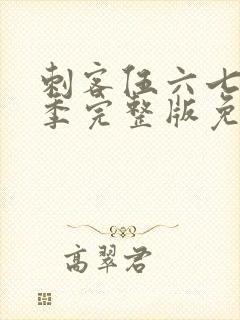 刺客伍六七
季完整版免
高翠君